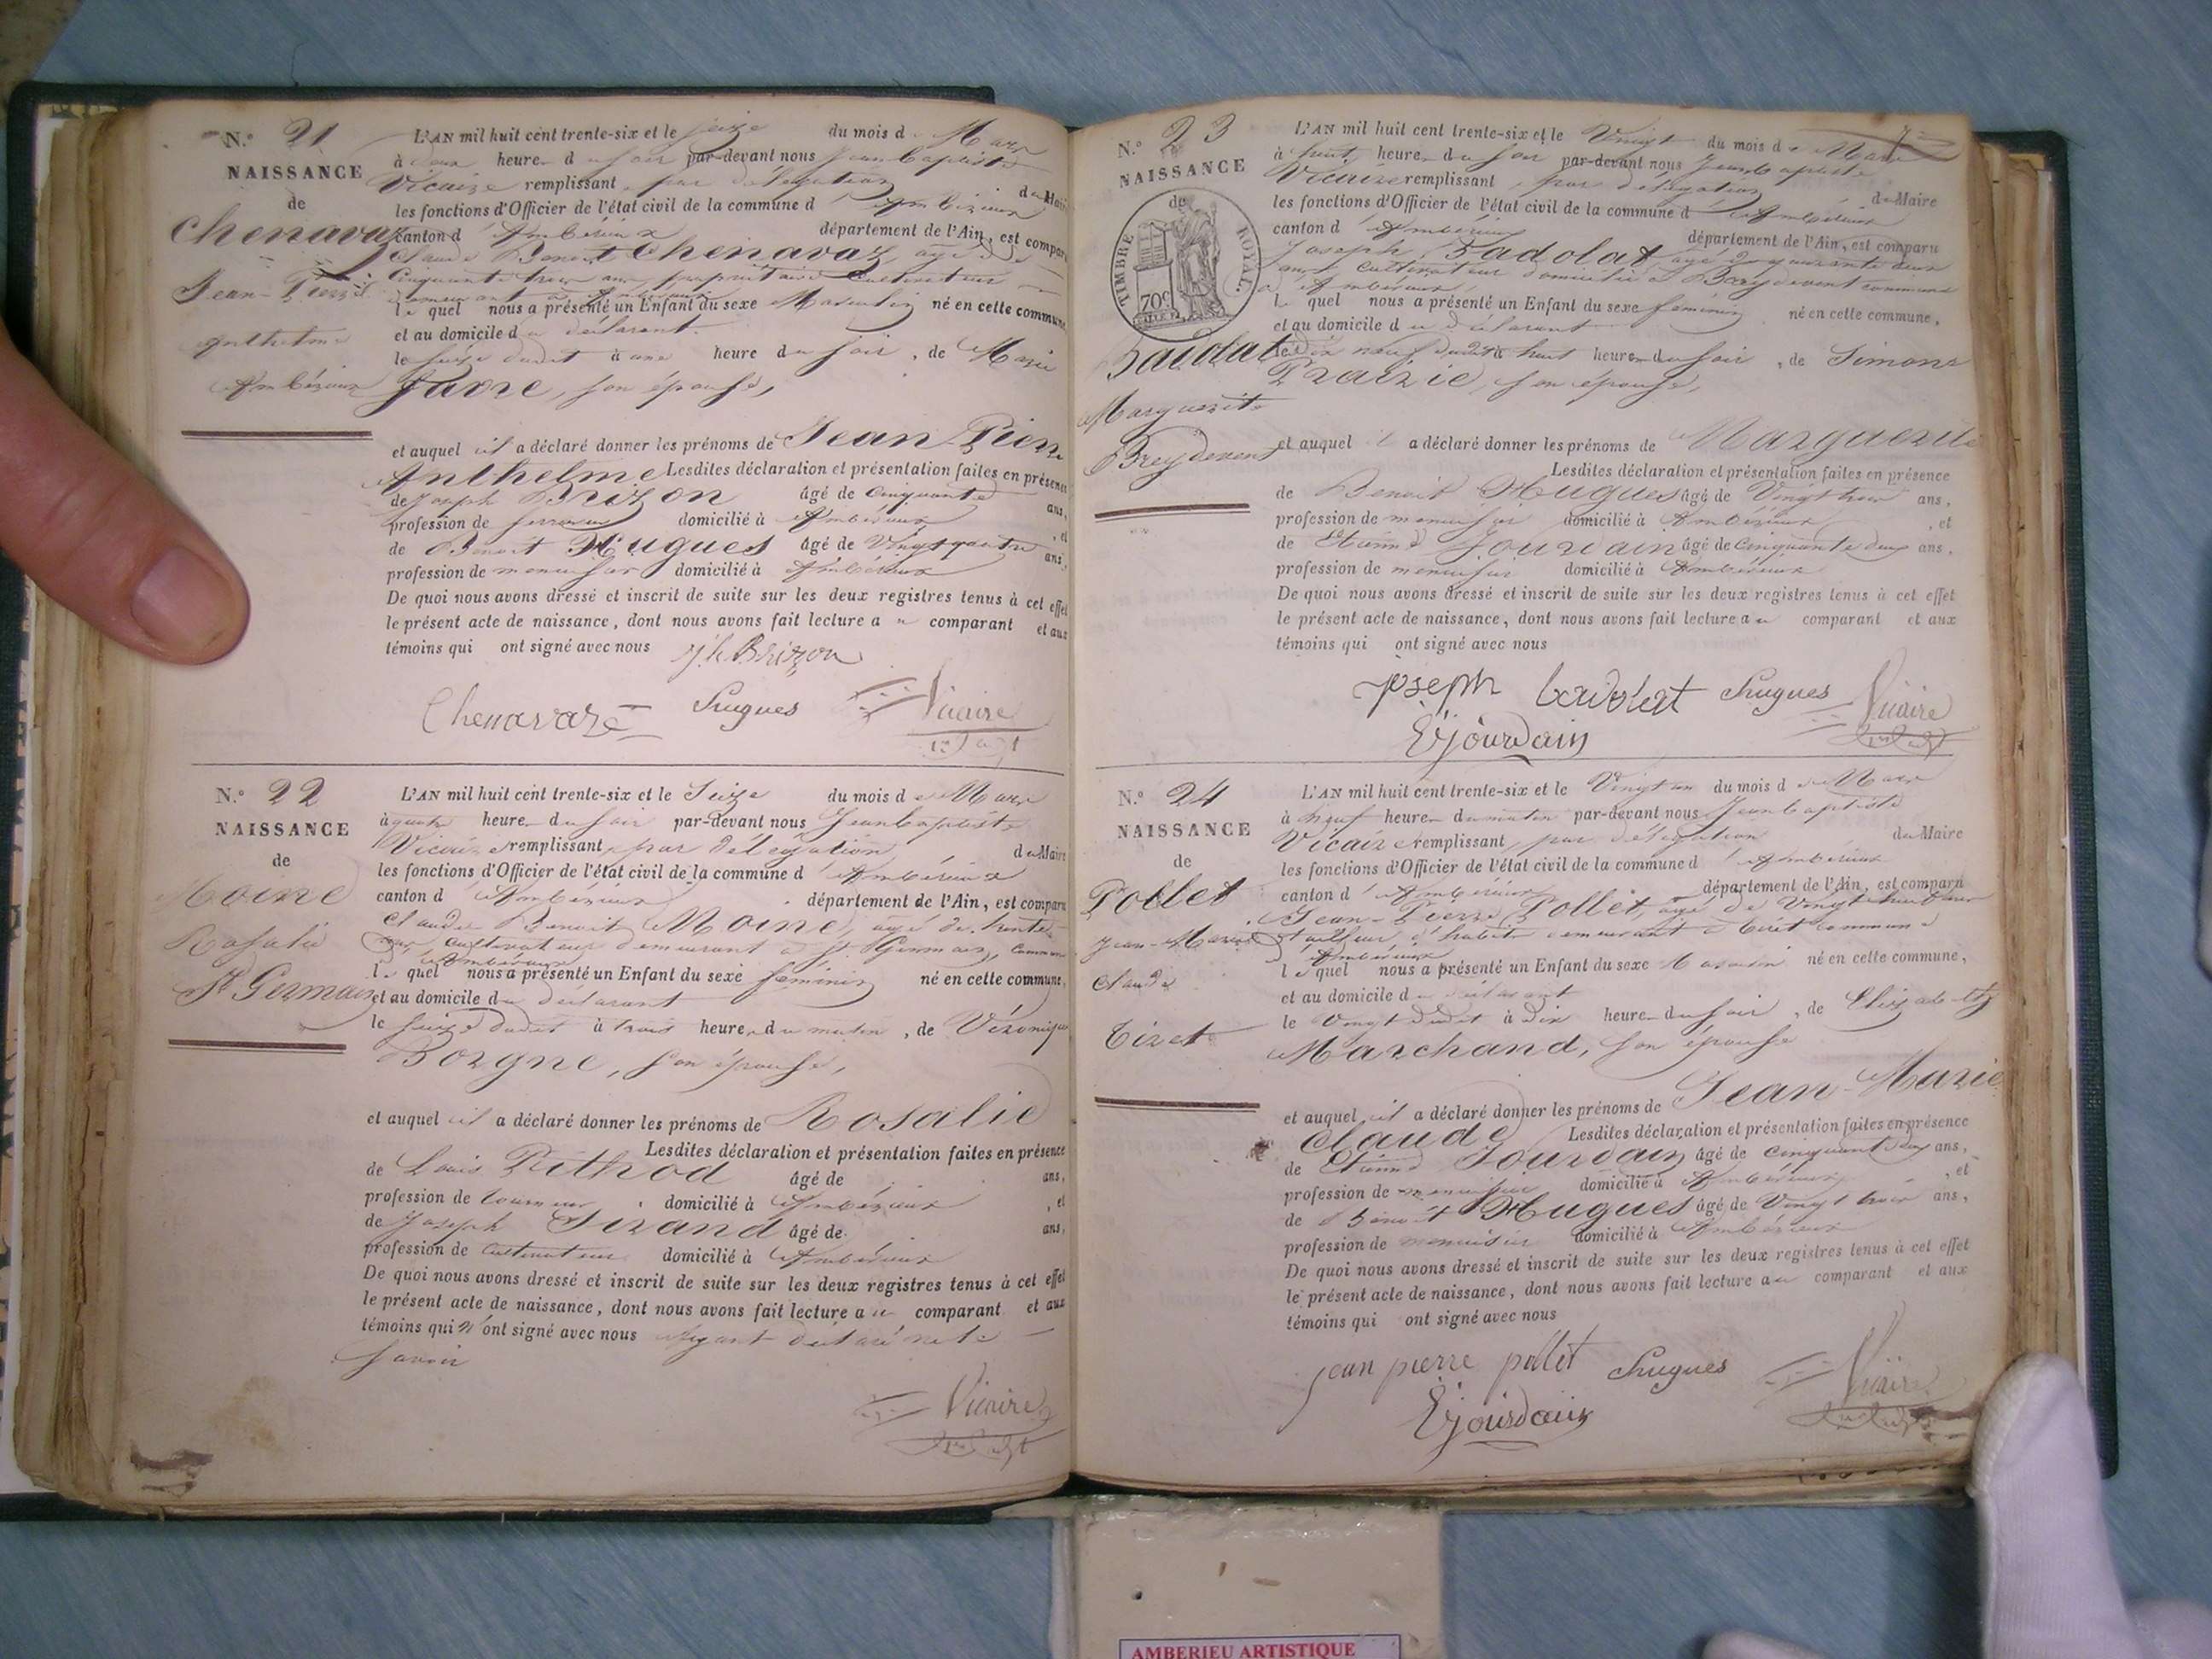 N.° 21
NAISSANCE
de
Chenavaz
Jean-Pierre
Anthelme
Ambérieux
L'AN mil huit cent trente-six et le seize du mois de Mars
à deux heure du soir par-devant nous Jean Baptiste
Vicaire remplissant par délégation du Maire
les fonctions d'Officier de l'état civil de la commune d'Ambérieux
canton d'Ambérieux département de l'Ain, est comparu
Claude Benoit Chenavaz, agé de
Cinquante trois ans, propriétaire Cultivateur
demeurant à Ambérieux
le quel nous a présenté un Enfant du sexe Masculin né en cette commune,
et au domicile du déclarant
le seize dudit à une heure du soir, de Marie
Favre, son épouse,
et auquel il a déclaré donner les prénoms de Jean Pierre
Anthelme Lesdites déclaration et présentation faites en présence
de Joseph Brizon âgé de Cinquante ans,
profession de domicilié à Ambérieux, et
de Benoit Hugues âgé de Vingt quatre ans,
profession de menuisier domicilié à Ambérieux
De quoi nous avons dressé et inscrit de suite sur les deux registres tenus à cet effet
le présent acte de naissance, dont nous avons fait lecture au comparant et aux
témoins qui ont signé avec nous Jh Brizon
Chenavaz Hugues Vicaire
N.° 22
NAISSANCE
de
Moine
Rosalie
St Germain
L'AN mil huit cent trente-six et le Seize du mois de Mars
à quatre heure du soir par-devant nous Jean Baptiste
Vicaire remplissant par délégation du Maire
les fonctions d'Officier de l'état civil de la commune d'Ambérieux
canton d'Ambérieux département de l'Ain, est comparu
Claude Benoit Moine, agé de trente
ans, cultivateur demeurant à St Germain, commune
d'Ambérieux
le quel nous a présenté un Enfant du sexe féminin né en cette commune,
et au domicile du déclarant
le seize dudit à trois heure du matin, de Véronique
Borgne, son épouse,
et auquel il a déclaré donner les prénoms de Rosalie
Lesdites déclaration et présentation faites en présence
de Louis Pithod âgé de ans,
profession de tourneur domicilié à Ambérieux, et
de Joseph Sirand âgé de ans,
profession de Cultivateur domicilié à Ambérieux
De quoi nous avons dressé et inscrit de suite sur les deux registres tenus à cet effet
le présent acte de naissance, dont nous avons fait lecture au comparant et aux
témoins qui n'ont signé avec nous ayant déclaré ne le
savoir
Vicaire
N.° 23
NAISSANCE
de
TIMBRE ROYAL
70c
Marguerite
Breydevent
L'AN mil huit cent trente-six et le Vingt du mois de Mars
à huit heure du soir par-devant nous Jean Baptiste
Vicaire remplissant par délégation du Maire
les fonctions d'Officier de l'état civil de la commune d'Ambérieux
canton d'Ambérieux département de l'Ain, est comparu
Joseph Badolat agé de quarante deux
ans, cultivateur domicilié à Breydevent commune
d'Ambérieux
le quel nous a présenté un Enfant du sexe féminin né en cette commune,
et au domicile du déclarant
le dix neuf dudit à huit heure du soir, de Simone
Prairie, son épouse,
et auquel il a déclaré donner les prénoms de Marguerite
Lesdites déclaration et présentation faites en présence
de Benoit Hugues âgé de Vingt trois ans,
profession de menuisier domicilié à Ambérieux, et
de Etienne Jourdain âgé de Cinquante deux ans,
profession de menuisier domicilié à Ambérieux
De quoi nous avons dressé et inscrit de suite sur les deux registres tenus à cet effet
le présent acte de naissance, dont nous avons fait lecture au comparant et aux
témoins qui ont signé avec nous
joseph badolat Hugues Vicaire
E jourdain
N.° 24
NAISSANCE
de
Pollet
Jean-Marie
Claude
Tiret
L'AN mil huit cent trente-six et le Vingt un du mois de Mars
à neuf heure du matin par-devant nous Jean Baptiste
Vicaire remplissant par délégation du Maire
les fonctions d'Officier de l'état civil de la commune d'Ambérieux
canton d'Ambérieux département de l'Ain, est comparu
Jean-Pierre Pollet, agé de Vingt huit ans
tailleur d'habits demeurant à Tiret commune
d'Ambérieux
le quel nous a présenté un Enfant du sexe Masculin né en cette commune,
et au domicile du déclarant
le Vingt dudit à dix heure du soir, de Elizabeth
Marchand, son épouse
et auquel il a déclaré donner les prénoms de Jean-Marie
Claude Lesdites déclaration et présentation faites en présence
de Etienne Jourdain âgé de cinquante deux ans,
profession de menuisier domicilié à Ambérieux, et
de Benoit Hugues âgé de Vingt trois ans,
profession de menuisier domicilié à Ambérieux
De quoi nous avons dressé et inscrit de suite sur les deux registres tenus à cet effet
le présent acte de naissance, dont nous avons fait lecture au comparant et aux
témoins qui ont signé avec nous
jean pierre pollet Hugues Vicaire
E jourdain
AMBERIEU ARTISTIQUE